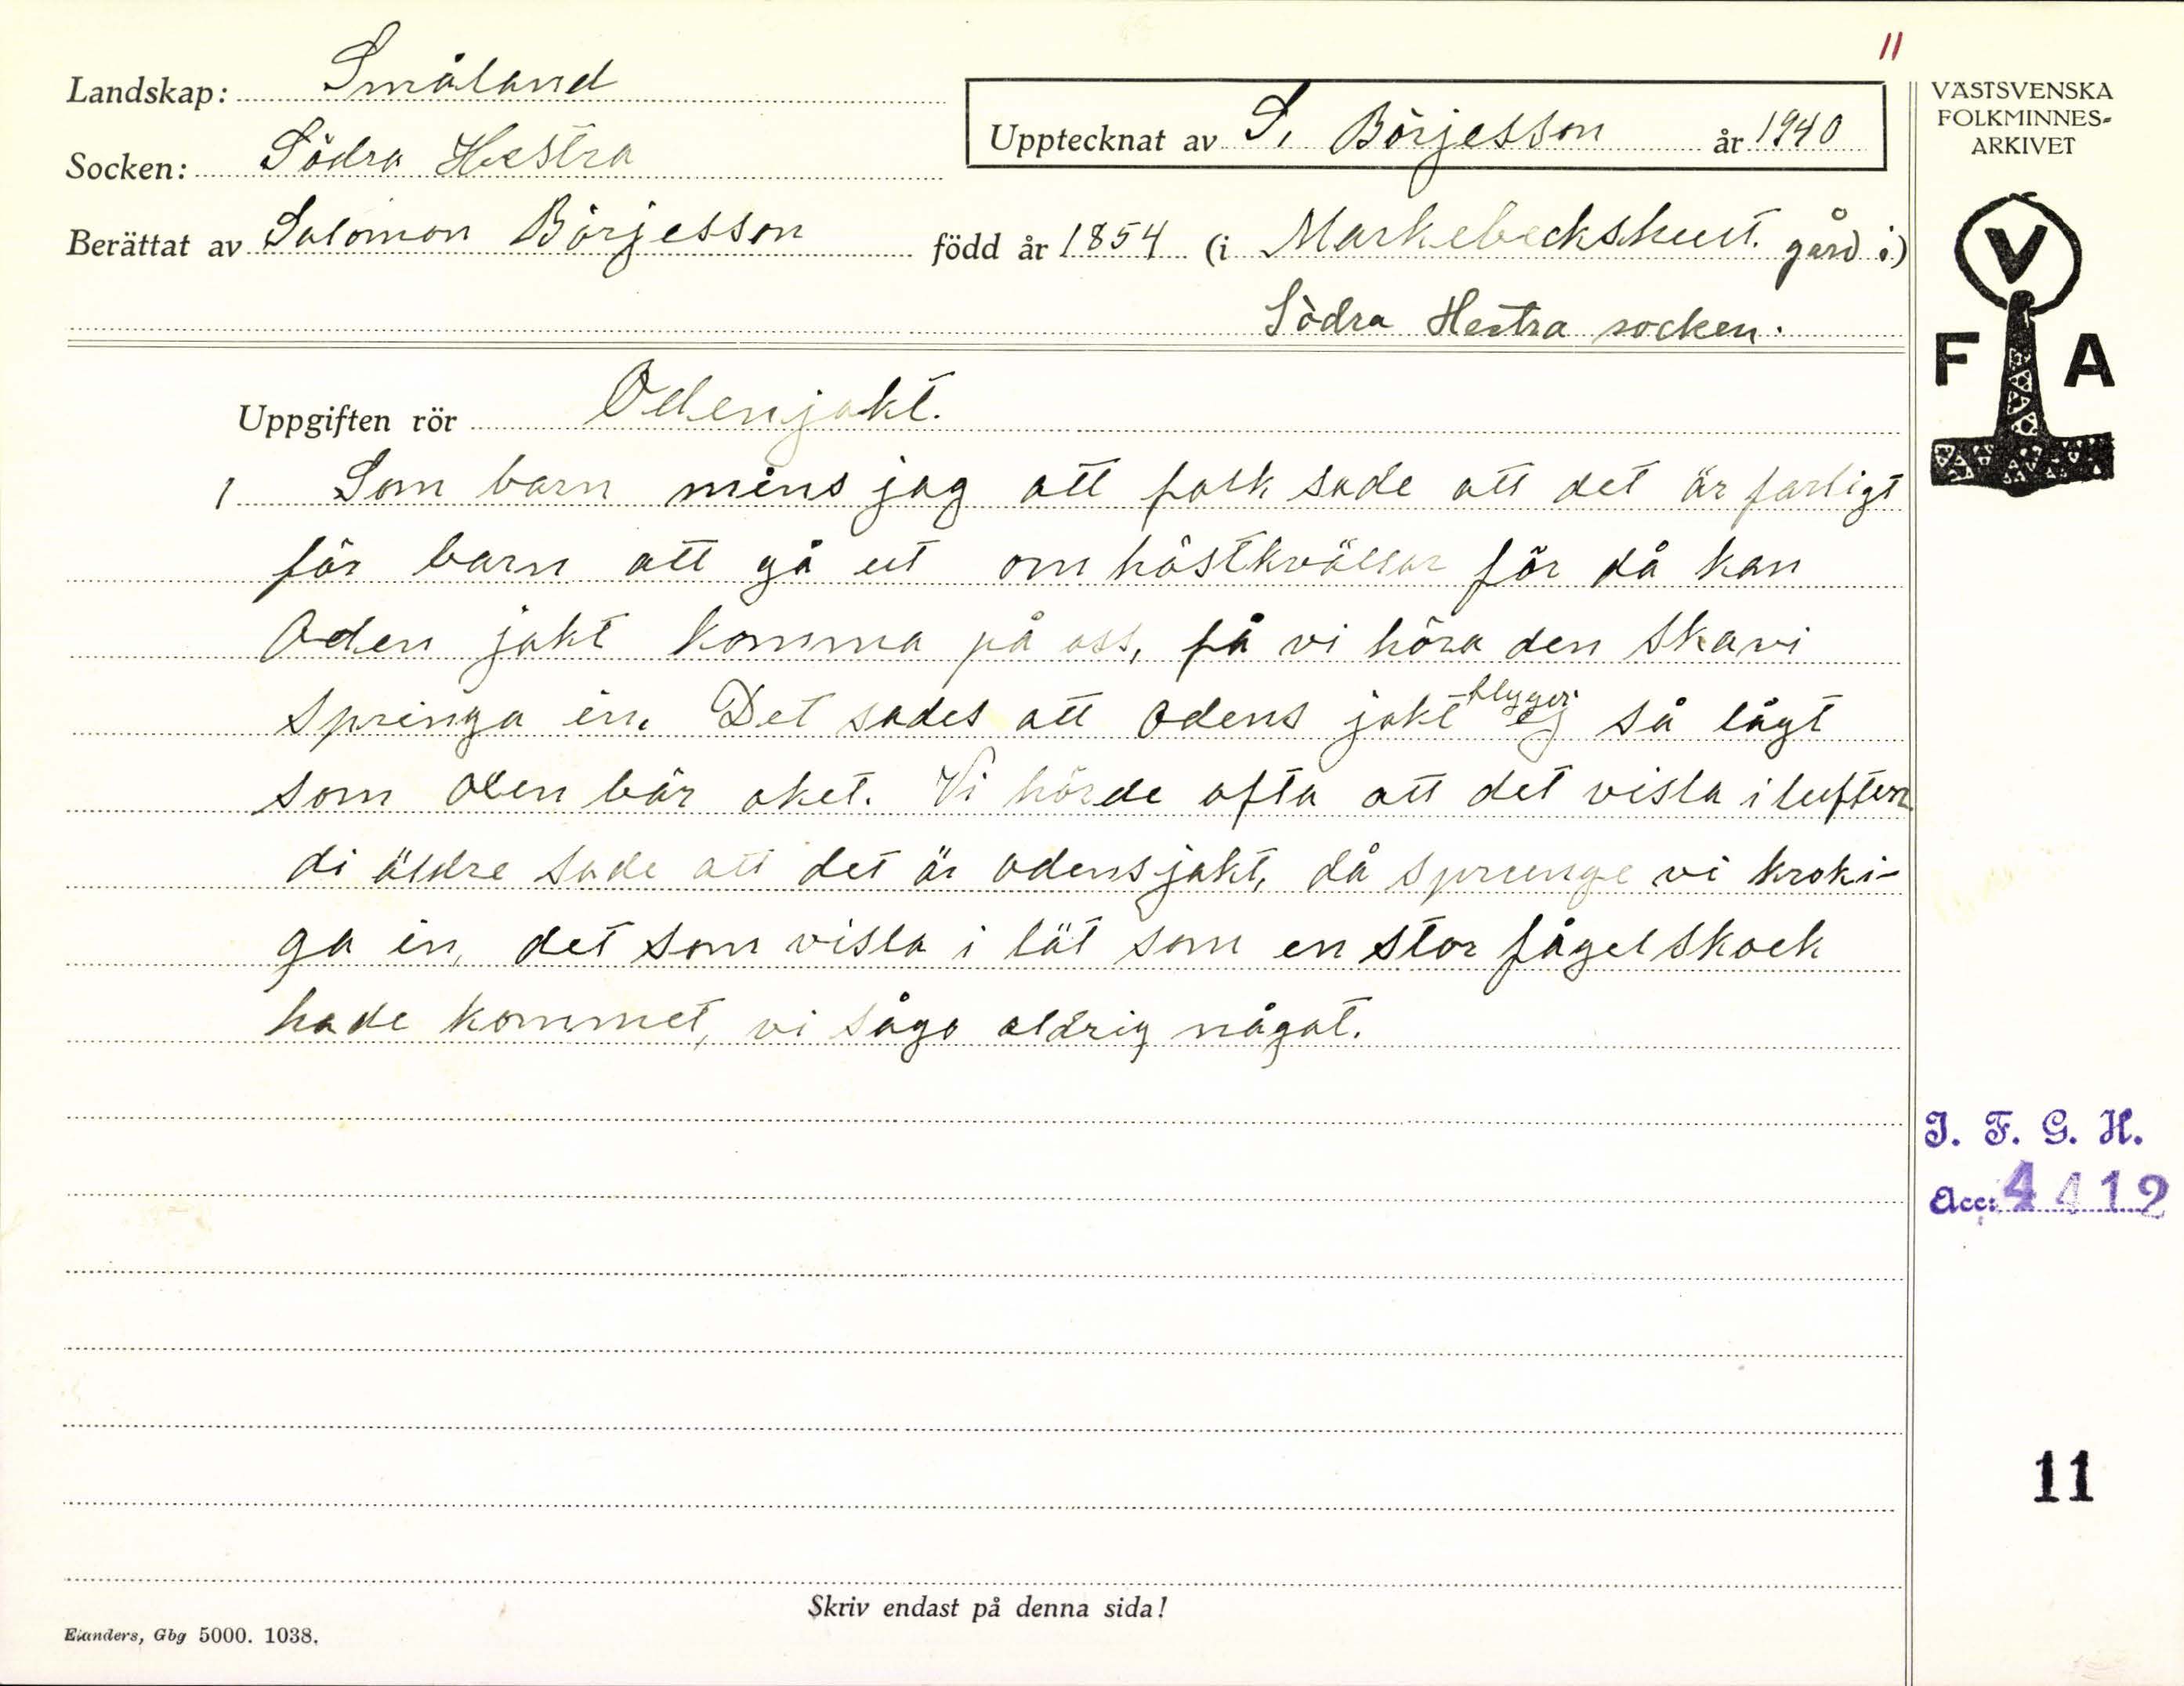 11
Landskap: Småland
Socken: Södra Hestra
Upptecknat av S. Börjesson år 1940
Berättat av Salomon Börjesson född år 1854 (i Markebeckshult. gård i)
Södra Hestra socken.
Uppgiften rör Odenjakt.
1 Som barn mins jag att folk sade att det är farligt
för barn att gå ut om höstkvällar för då kan
Oden jakt komma på oss, få vi höra den ska vi
springa in. Det sades att Odens jakt flyger ej så lågt
som Oxen bär oket. Vi hörde ofta att det visla i luften
di äldre sade att det är odens jakt, då sprunge vi kroki-
ga in, det som visla i lät som en stor fågelskock
hade kommet, vi sågo aldrig något.
Skriv endast på denna sida!
Elanders, Gbg 5000. 1038.
VÄSTSVENSKA
FOLKMINNES-
ARKIVET
V
F A
I. F. G. H.
Acc: 4412
11